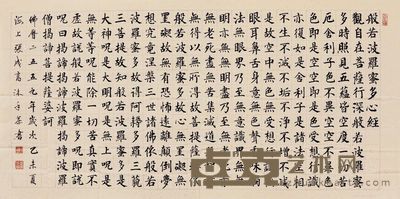 般若波羅蜜多心經
觀自在菩薩行深般若波羅蜜
多時照見五蘊皆空度一切苦
厄舍利子色不異空空不異色
色即是空空即是色受想行識
亦復如是舍利子是諸法空相
不生不滅不垢不淨不增不減
是故空中無色無受想行識無
眼耳鼻舌身意無色聲香味觸
法無眼界乃至無意識界無無
明亦無無明盡乃至無老死亦
無老死盡無苦集滅道無智亦
無得以無所得故菩提薩埵依
般若波羅蜜多故心無罣礙無
罣礙故無有恐怖遠離顛倒夢
想究竟涅槃三世諸佛依般若
波羅蜜多故得阿耨多羅三藐
三菩提故知般若波羅蜜多是
大神呪是大明呪是無上呪是
無等等呪能除一切苦真實不
虛故說般若波羅蜜多呪即說
呪曰揭諦揭諦波羅揭諦波羅
僧揭諦菩提薩婆訶
佛曆二五五九年歲次乙未夏
海上張成沐手恭書